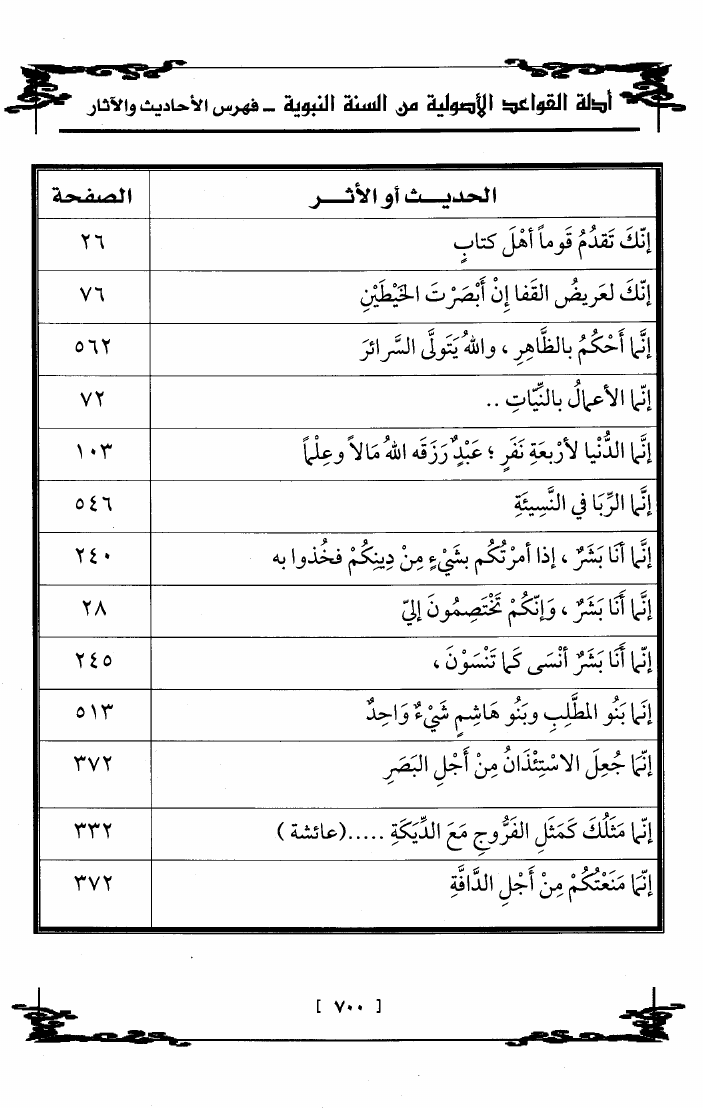 أدلة القواعد الأصولية من السنة النبوية ــ فهرس الأحاديث والآثار
الحديـــث أو الأثـــر الصفحة
إنّكَ تَقدُمُ قَوماً أهْلَ كتابٍ ٢٦
إنّكَ لعَريضُ القَفا إنْ أَبْصَرْتَ الخَيْطَيْنِ ٧٦
إنَّما أَحْكُمُ بالظَّاهِرِ ، واللهُ يَتَولَّى السَّرائرَ ٥٦٢
إنّما الأعمالُ بالنِّيّاتِ .. ٧٢
إنَّما الدُّنْيا لأرْبعَةِ نَفَرٍ ؛ عَبْدٌ رَزَقَه اللهُ مَالاً وعِلْماً ١٠٣
إنَّما الرِّبَا في النَّسِيئَةِ ٥٤٦
إنَّما أنَا بَشَرٌ ، إذا أمرْتُكُم بشَيْءٍ مِنْ دِينِكُمْ فخُذوا به ٢٤٠
إنَّما أَنَا بَشَرٌ ، وَإنّكُمْ تَخْتَصِمُونَ إليّ ٢٨
إنّما أَنَا بَشَرٌ أنْسَى كَما تَنْسَوْنَ ، ٢٤٥
إنَما بَنُو المطَّلِبِ وبَنُو هَاشِمٍ شَيْءٌ وَاحِدٌ ٥١٣
إنّما جُعِلَ الاسْتِئْذَانُ مِنْ أَجْلِ البَصَرِ ٣٧٢
إنّما مَثَلُكَ كَمَثَلِ الفَرُّوجِ مَعَ الدِّيَكَةِ .....(عائشة ) ٣٣٢
إنّمَا مَنَعْتُكُمْ مِنْ أَجْلِ الدَّافَّةِ ٣٧٢
[ ٧٠٠ ]